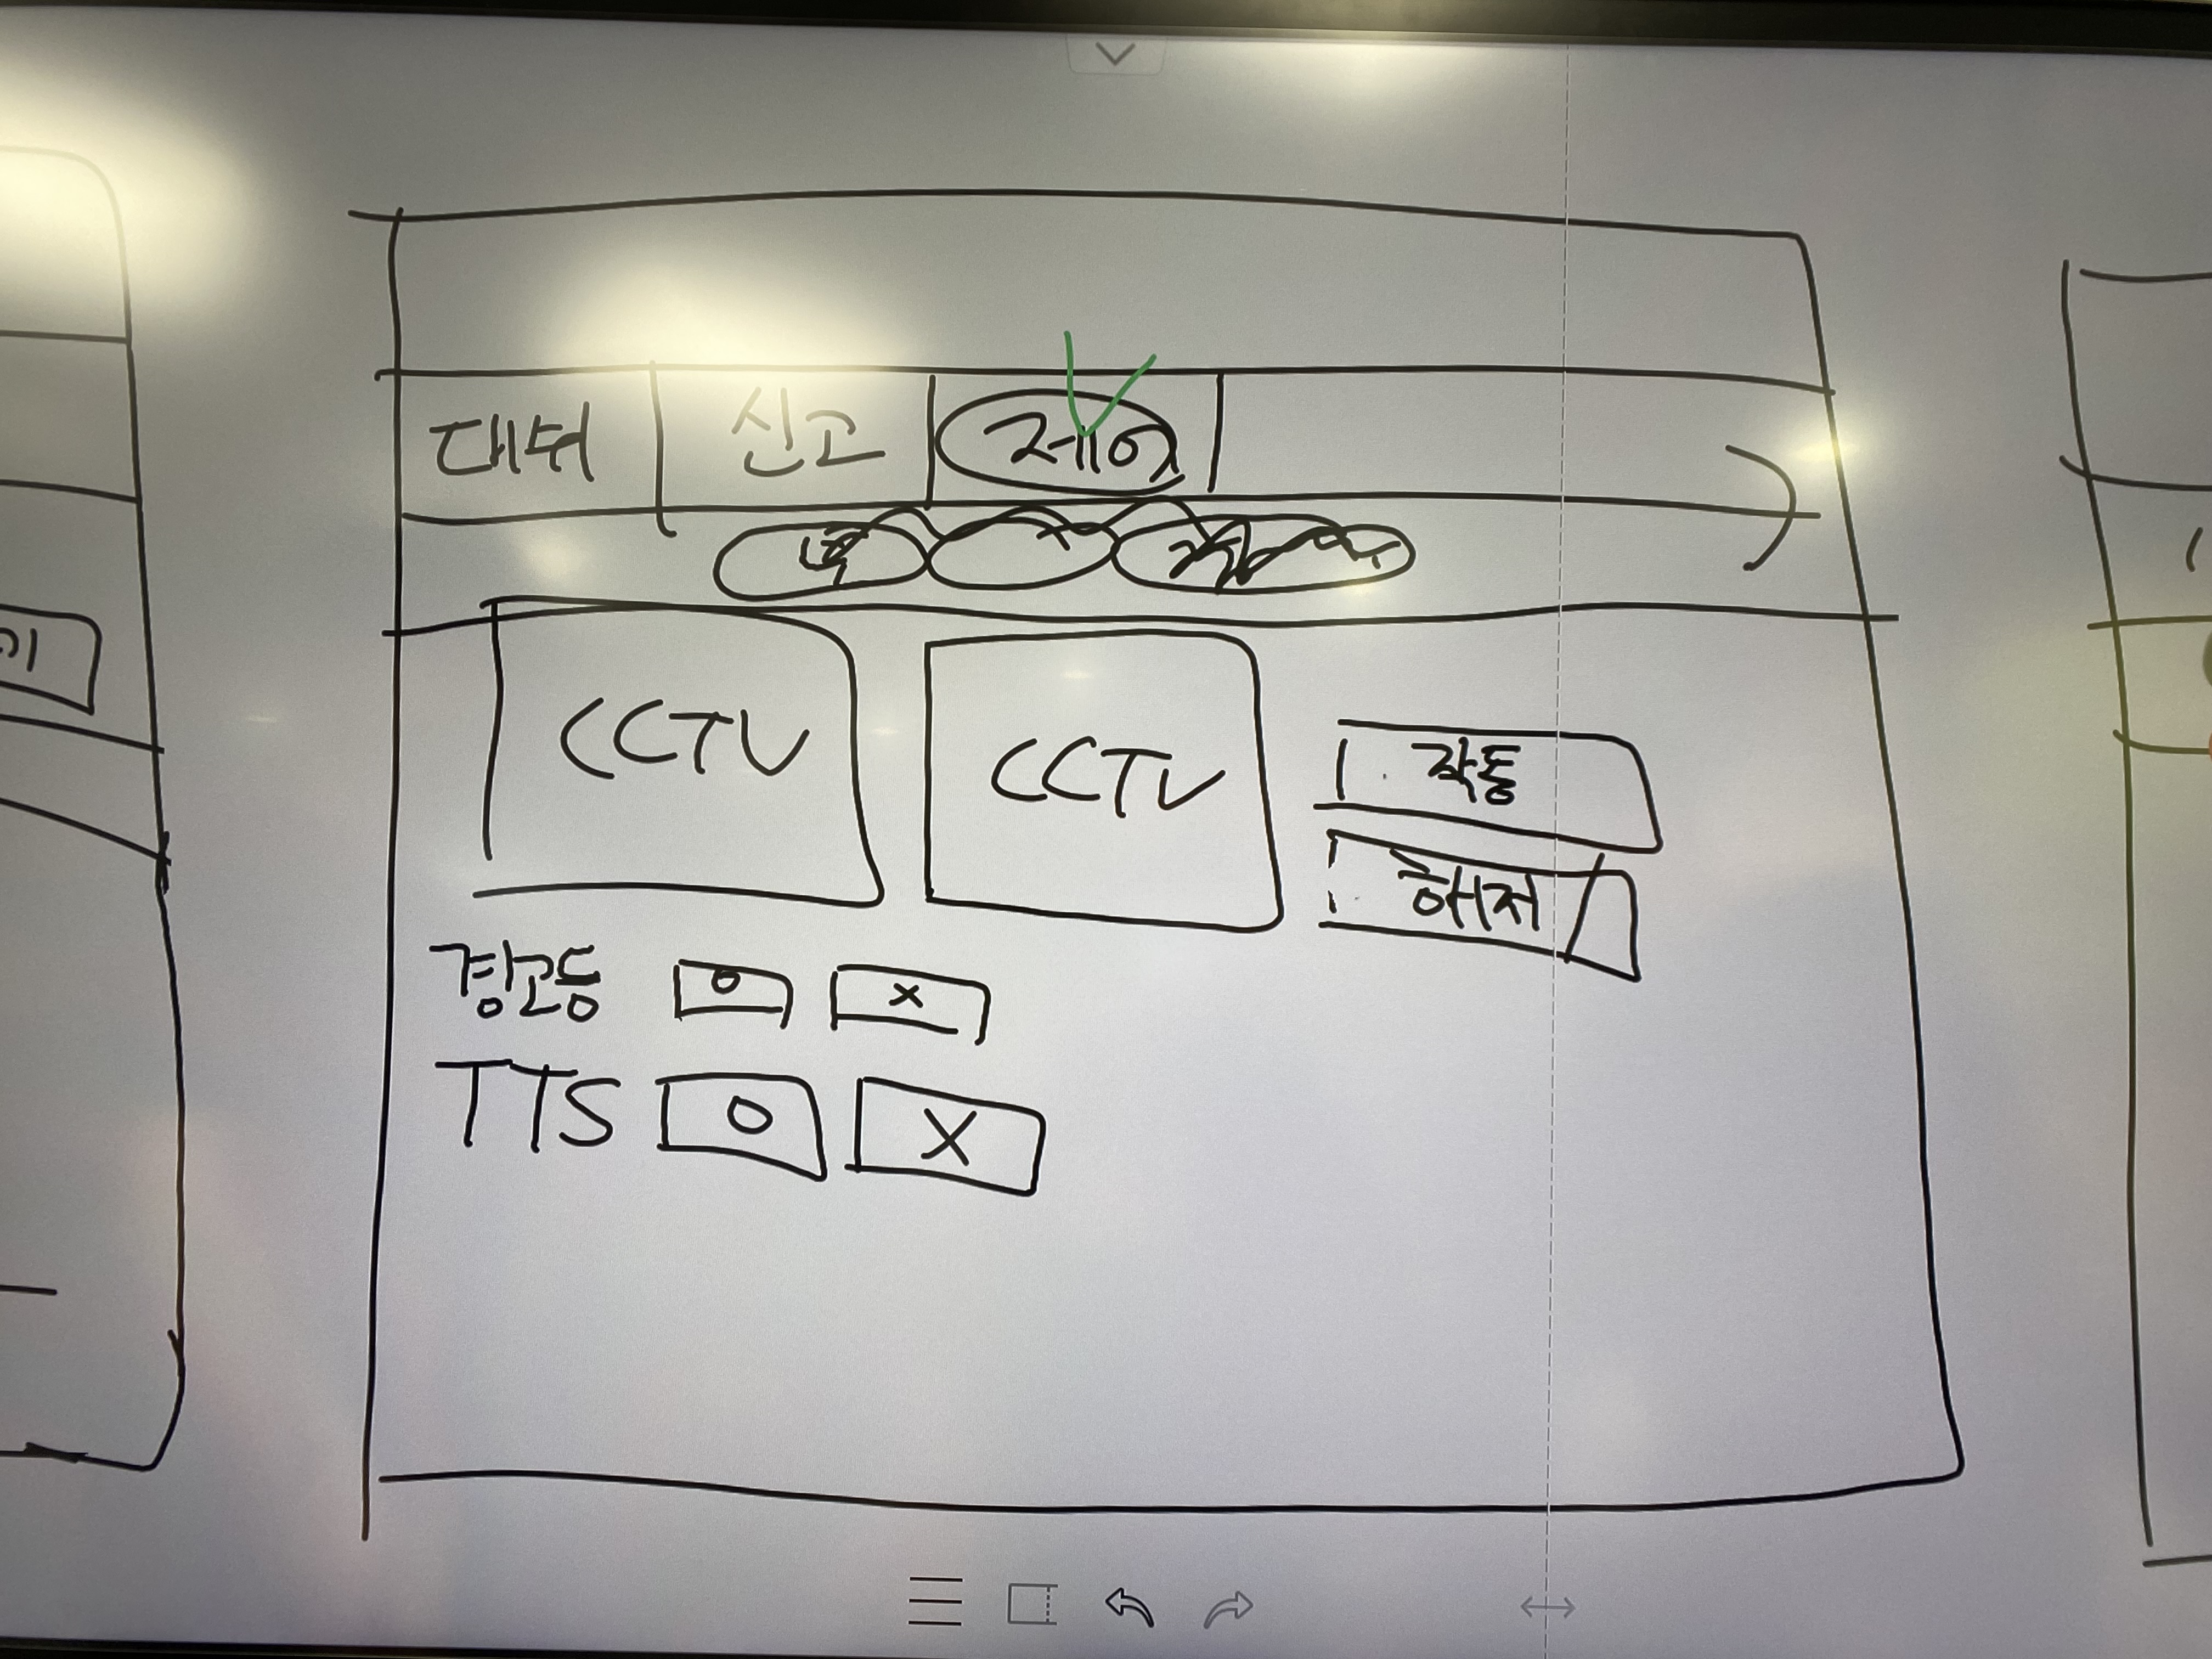 대쉬 신고 제어
CCTV CCTV
작동
해제
경광등 O X
TTS O X